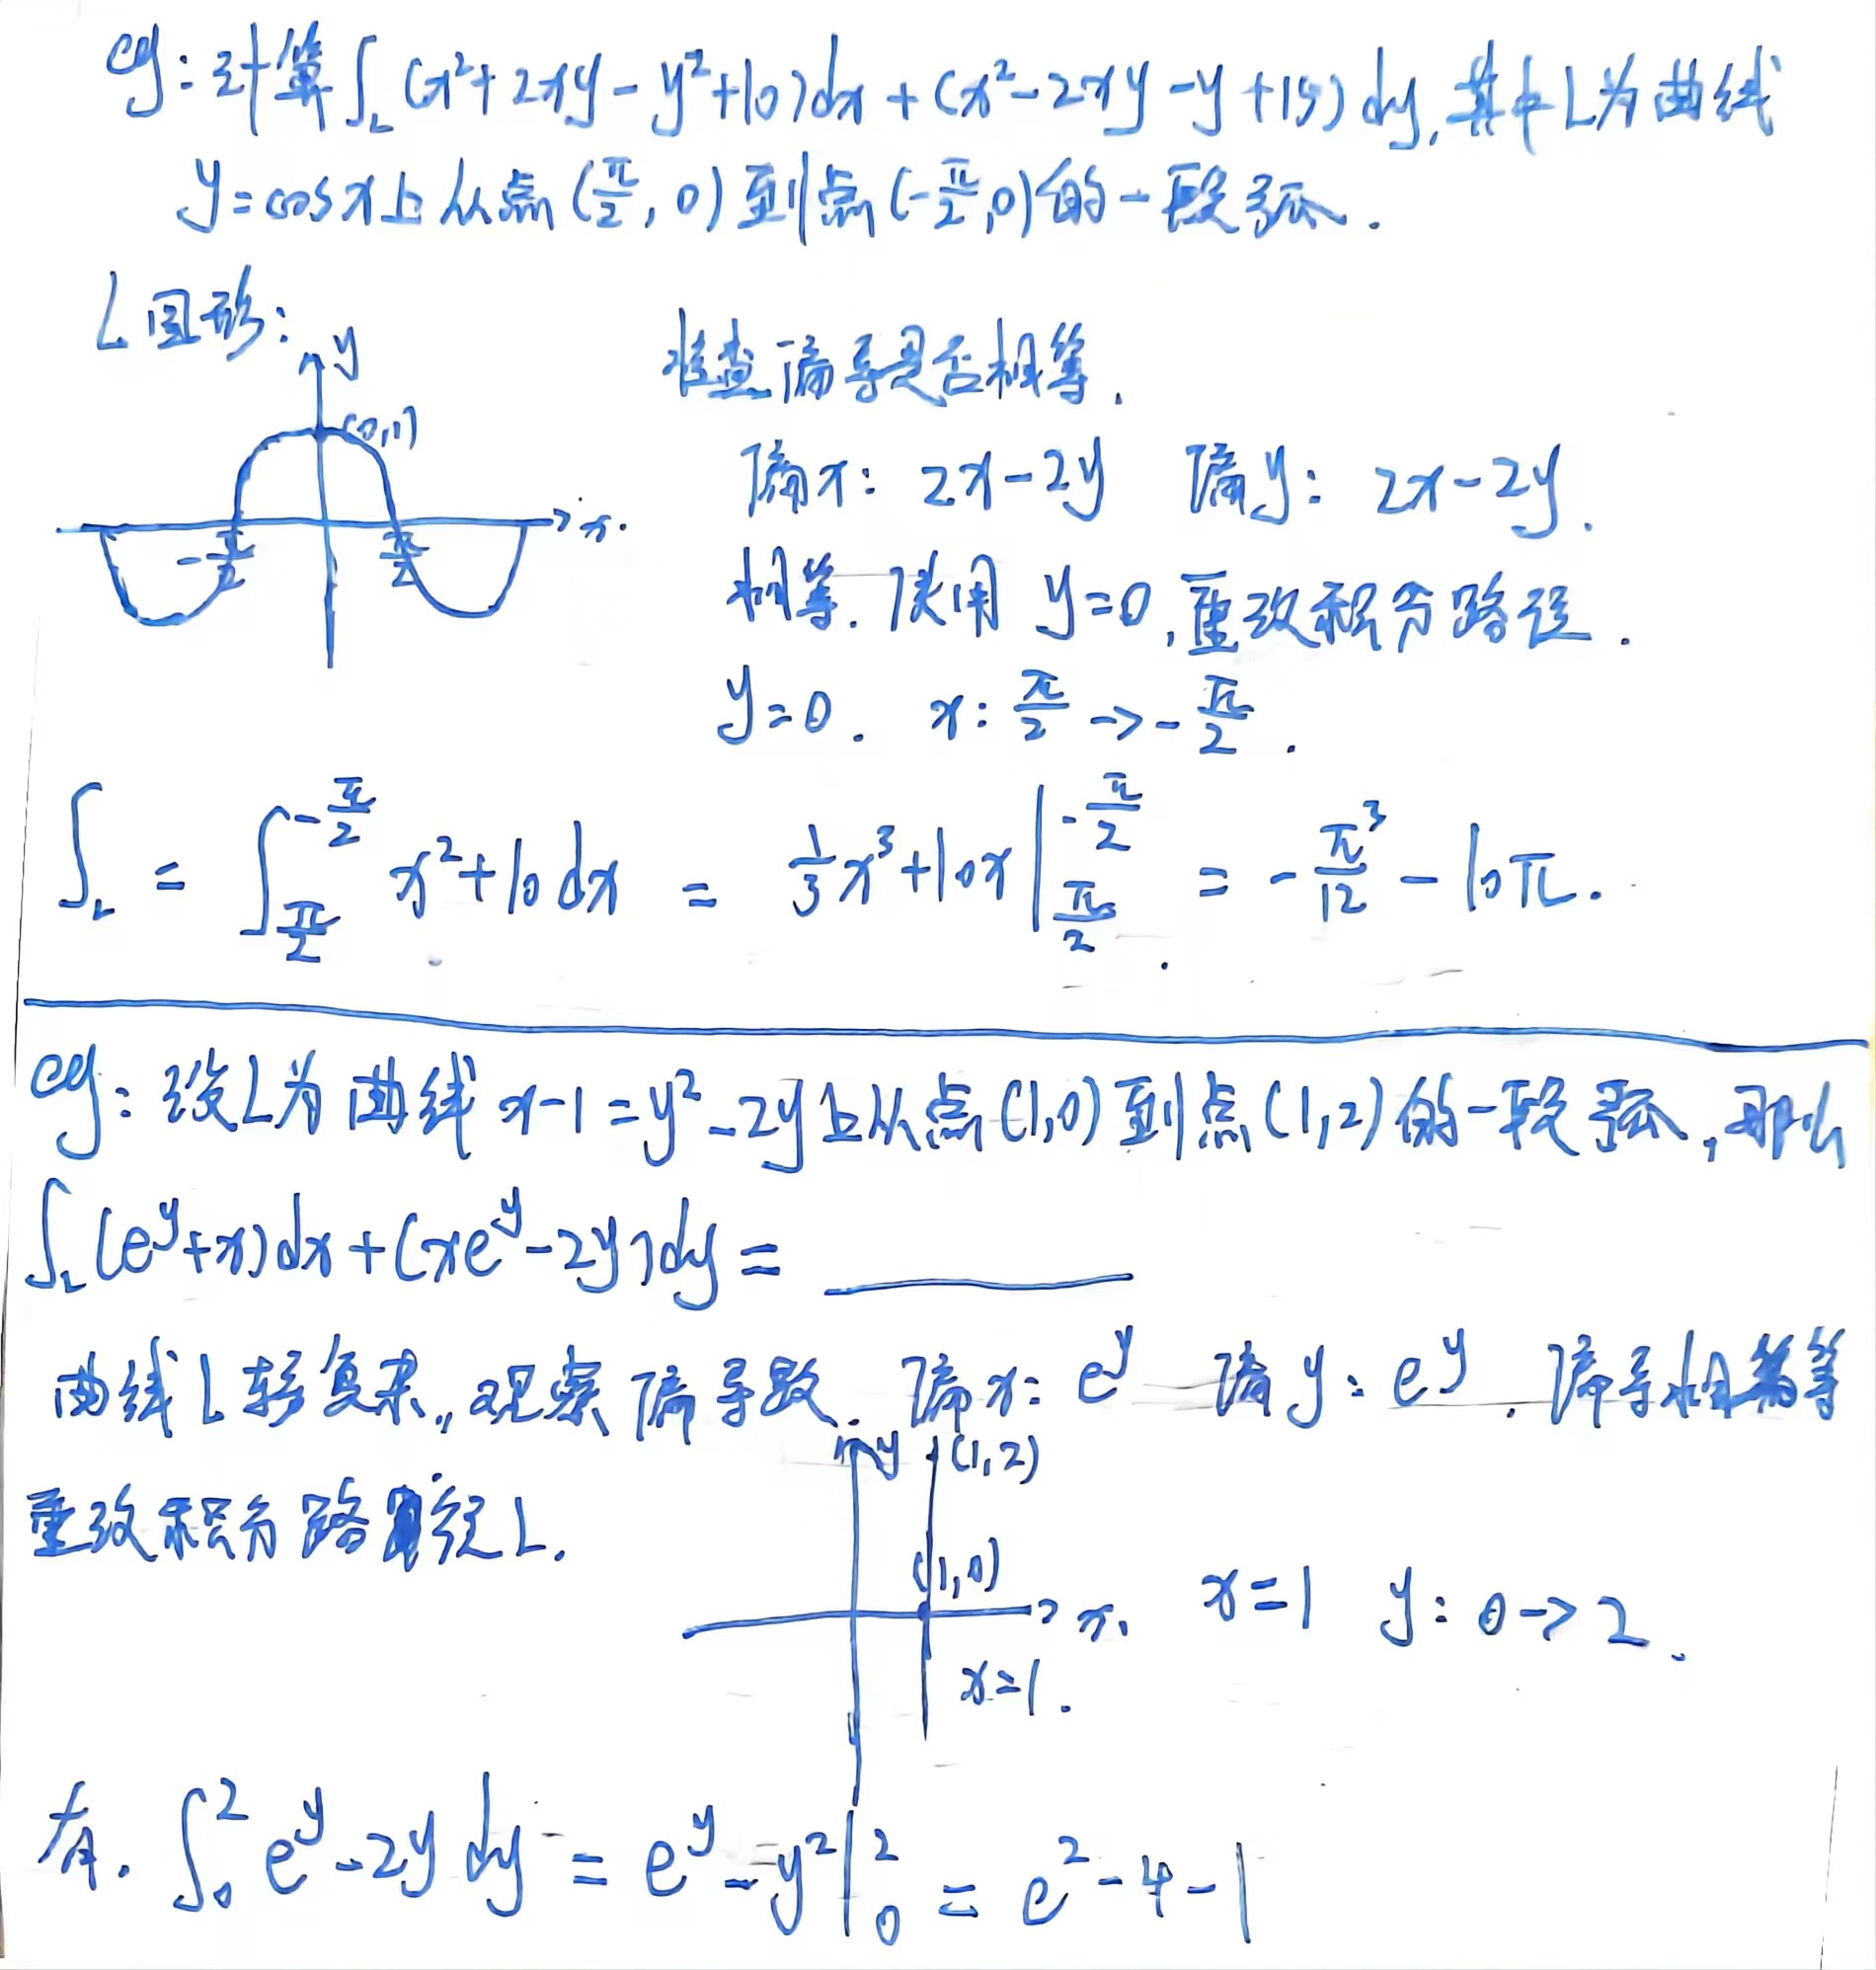 eg:计算∫_L (x²+2xy-y²+10)dx+(x²-2xy-y+15)dy,其中L为曲线
y=cosx上从点(π/2,0)到点(-π/2,0)的一段弧.
L图形:
y
(0,1)
x.
-π/2
π/2
检查偏导是否相等.
偏x: 2x-2y 偏y: 2x-2y.
相等.使用 y=0,重改积分路径.
y=0. x: π/2 -> -π/2.
∫_L = ∫_{π/2}^{-π/2} x²+10dx = 1/3x³+10x|_{π/2}^{-π/2} = -π³/12-10π.
eg:设L为曲线 x-1=y²-2y上从点(1,0)到点(1,2)的一段弧,那么
∫_L (e^y+x)dx+(xe^y-2y)dy=
曲线L较复杂,观察偏导数. 偏x: e^y 偏y: e^y. 偏导相等
重改积分路径L.
y
(1,2)
(1,0)
x.
x=1.
x=1 y: 0->2.
有. ∫_0^2 e^y-2y dy = e^y-y²|_0^2 = e²-4-1